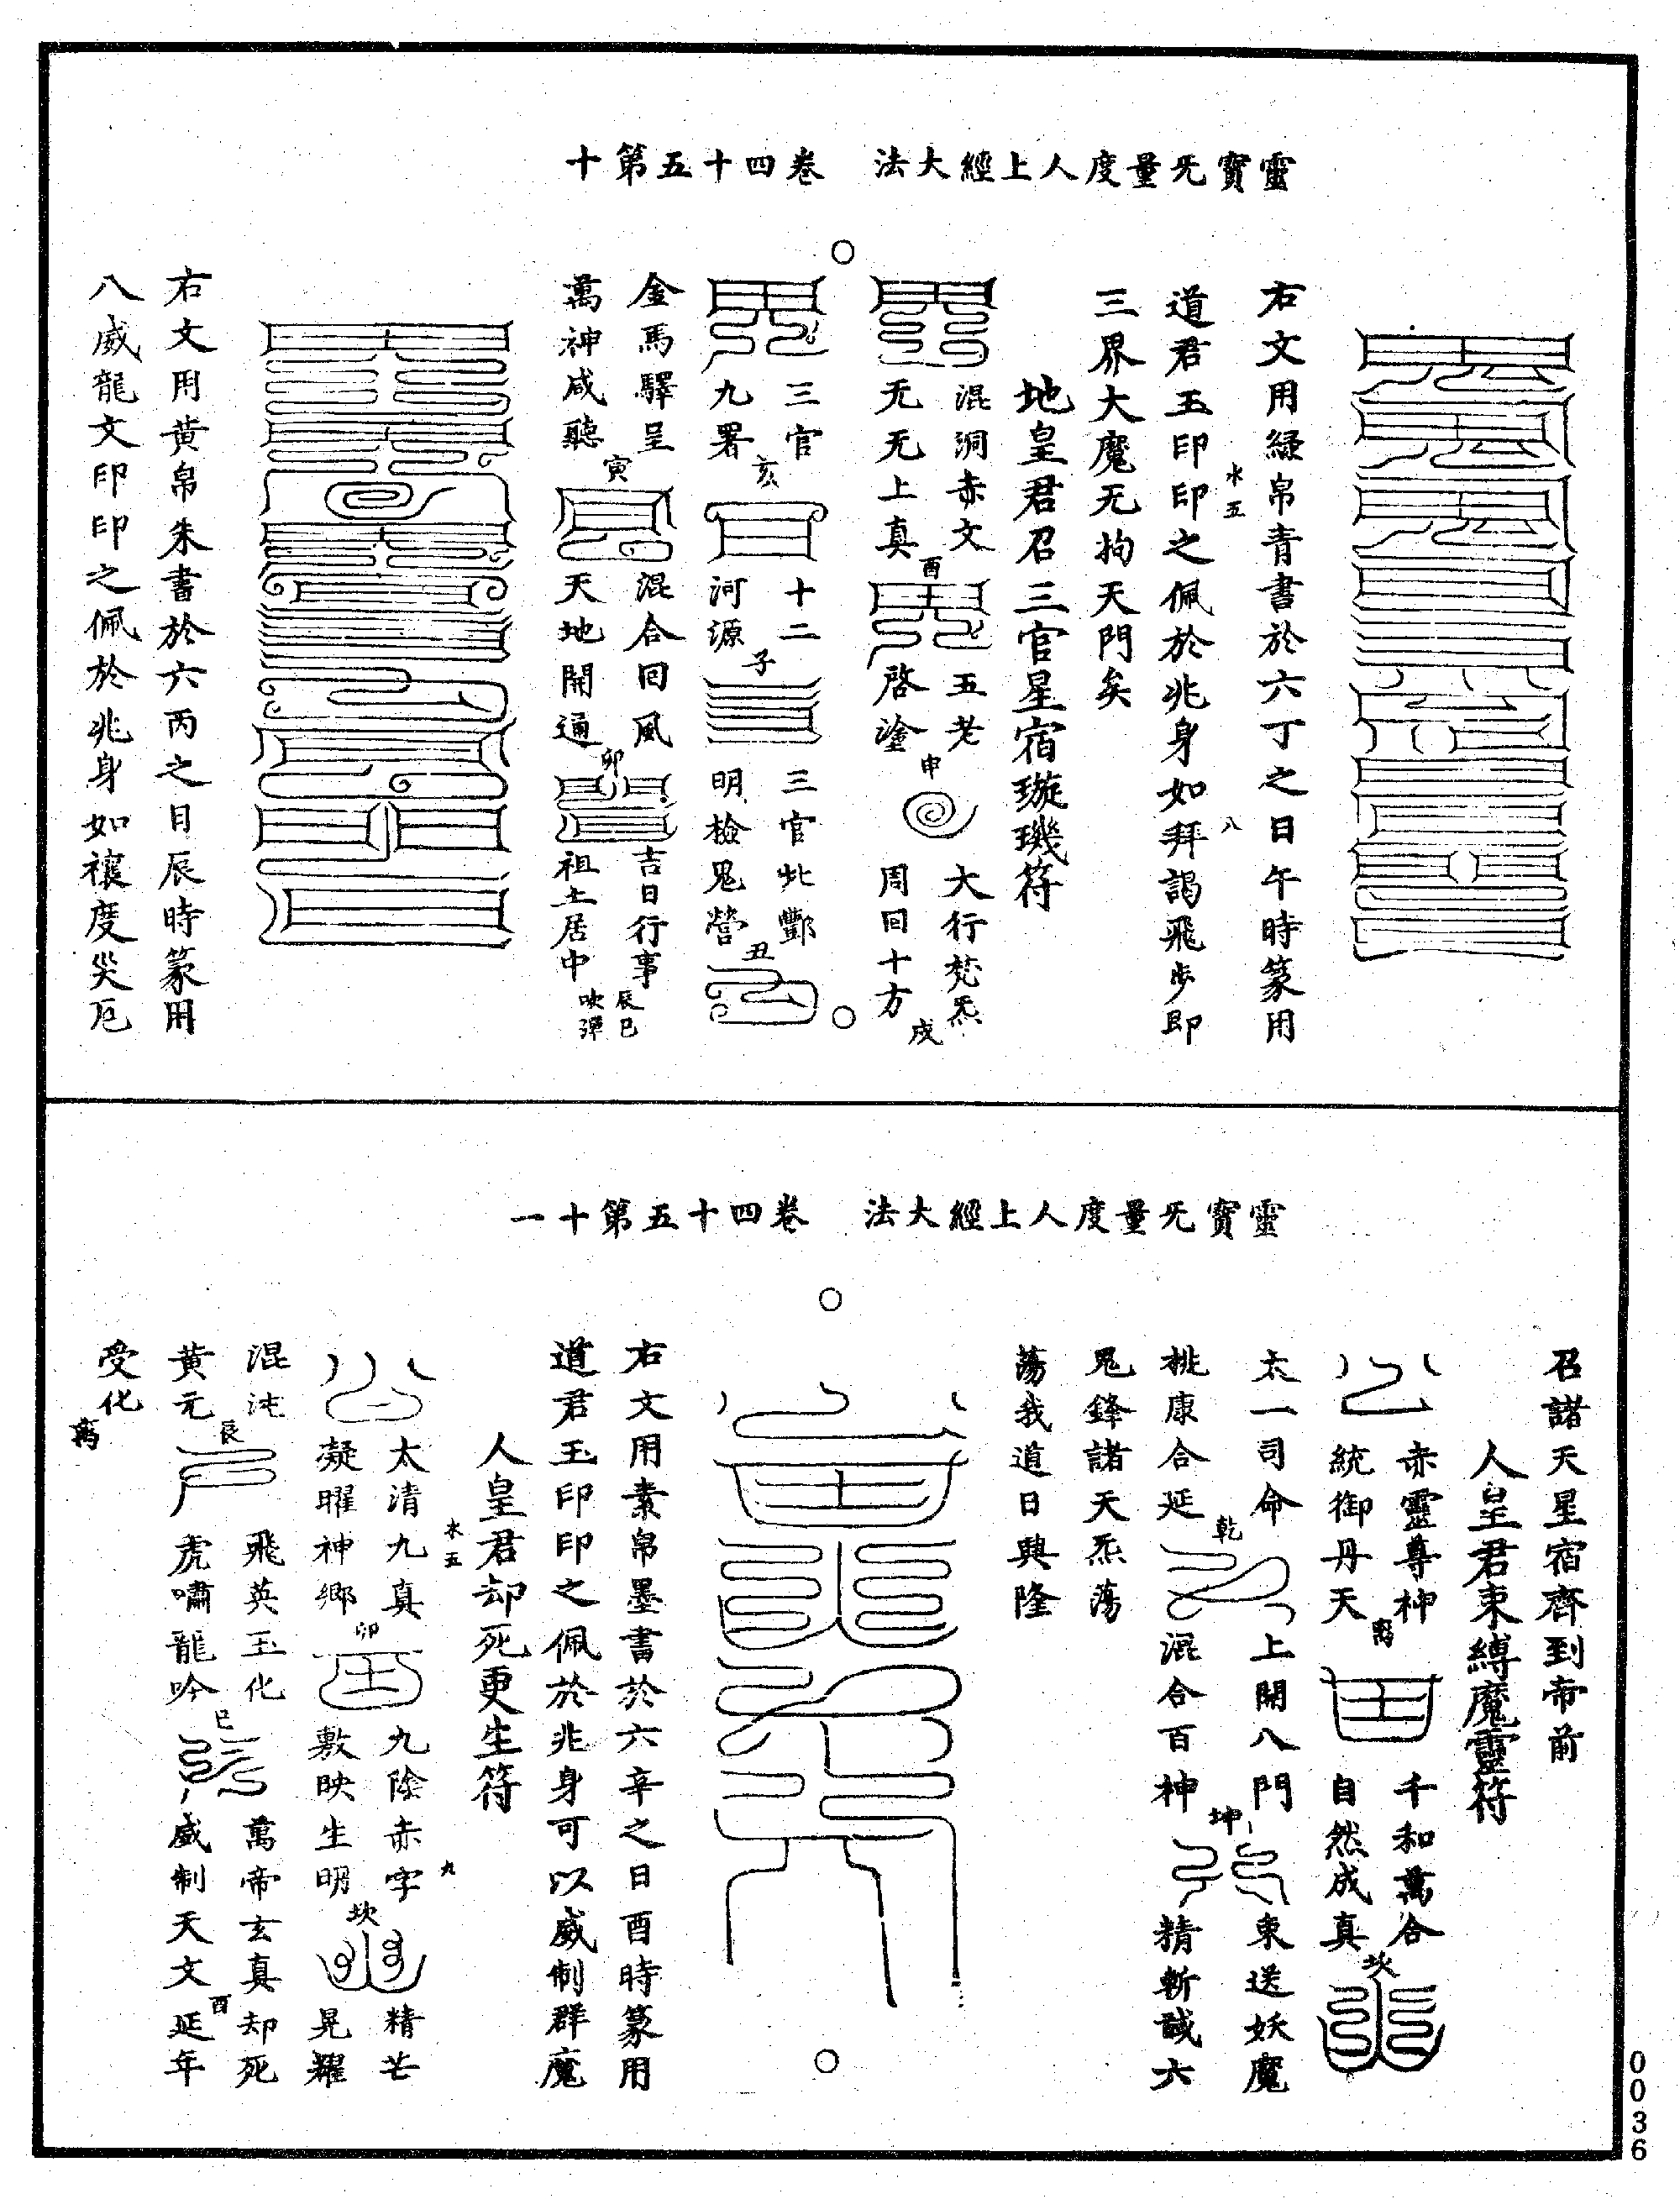 靈寶旡量度人上經大法　卷四十五第十
右文用緑帛青書於六丁之日午時篆用
道君玉印印之佩於兆身如拜謁飛步即
水五
八
三界大魔无拘天門矣
地皇君召三官星宿璇璣符
混洞赤文
无无上真
酉
五老
啓塗
申
大行梵炁
周回十方
戌
三官
九署
亥
十二
河源
子
三官北酆
明檢鬼營
丑
金馬驛呈
萬神咸聽
寅
混合回風
天地開通
卯
吉日行事
祖土居中
辰巳
右文用黄帛朱書於六丙之日辰時篆用
八威龍文印印之佩於兆身如禳度災厄
靈寶旡量度人上經大法　卷四十五第十一
召諸天星宿齊到帝前
人皇君束縛魔靈符
赤靈尊神
統御丹天
千和萬合
自然成真
坎
太一司命
桃康合延
乾
上開八門
混合百神
坤
束送妖魔
精斬馘六
鬼鋒諸天炁蕩
蕩我道日興隆
右文用素帛墨書於六辛之日酉時篆用
道君玉印印之佩於兆身可以威制群魔
人皇君却死更生符
水五
九
太清九真
凝曜神鄉
卯
九陰赤字
敷映生明
坎
精芒
晃耀
混沌
黄元
辰
飛英玉化
虎嘯龍吟
巳
萬帝玄真却死
威制天文延年
酉
受化
0036